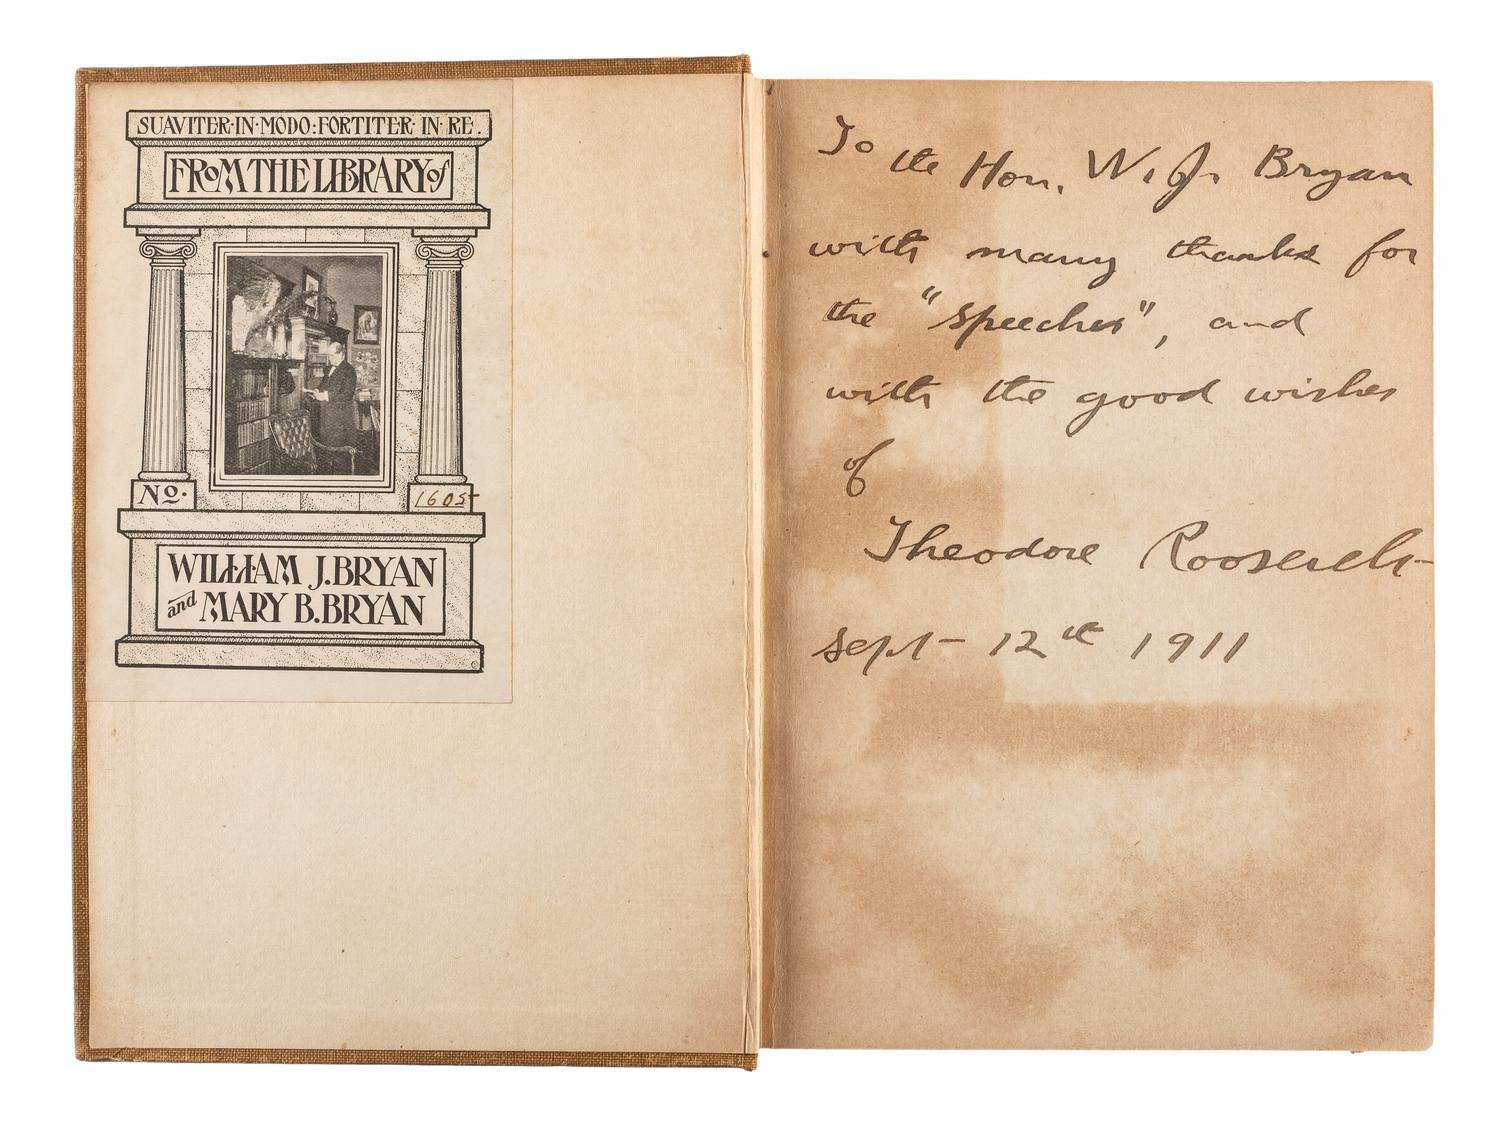 SUAVITER·IN·MODO:FORTITER·IN·RE.
FROM THE LIBRARY of
No. 1605
WILLIAM J. BRYAN
and MARY B. BRYAN
To the Hon. W. J. Bryan
with many thanks for
the "speeches", and
with the good wishes
of
Theodore Roosevelt
Sept 12th 1911